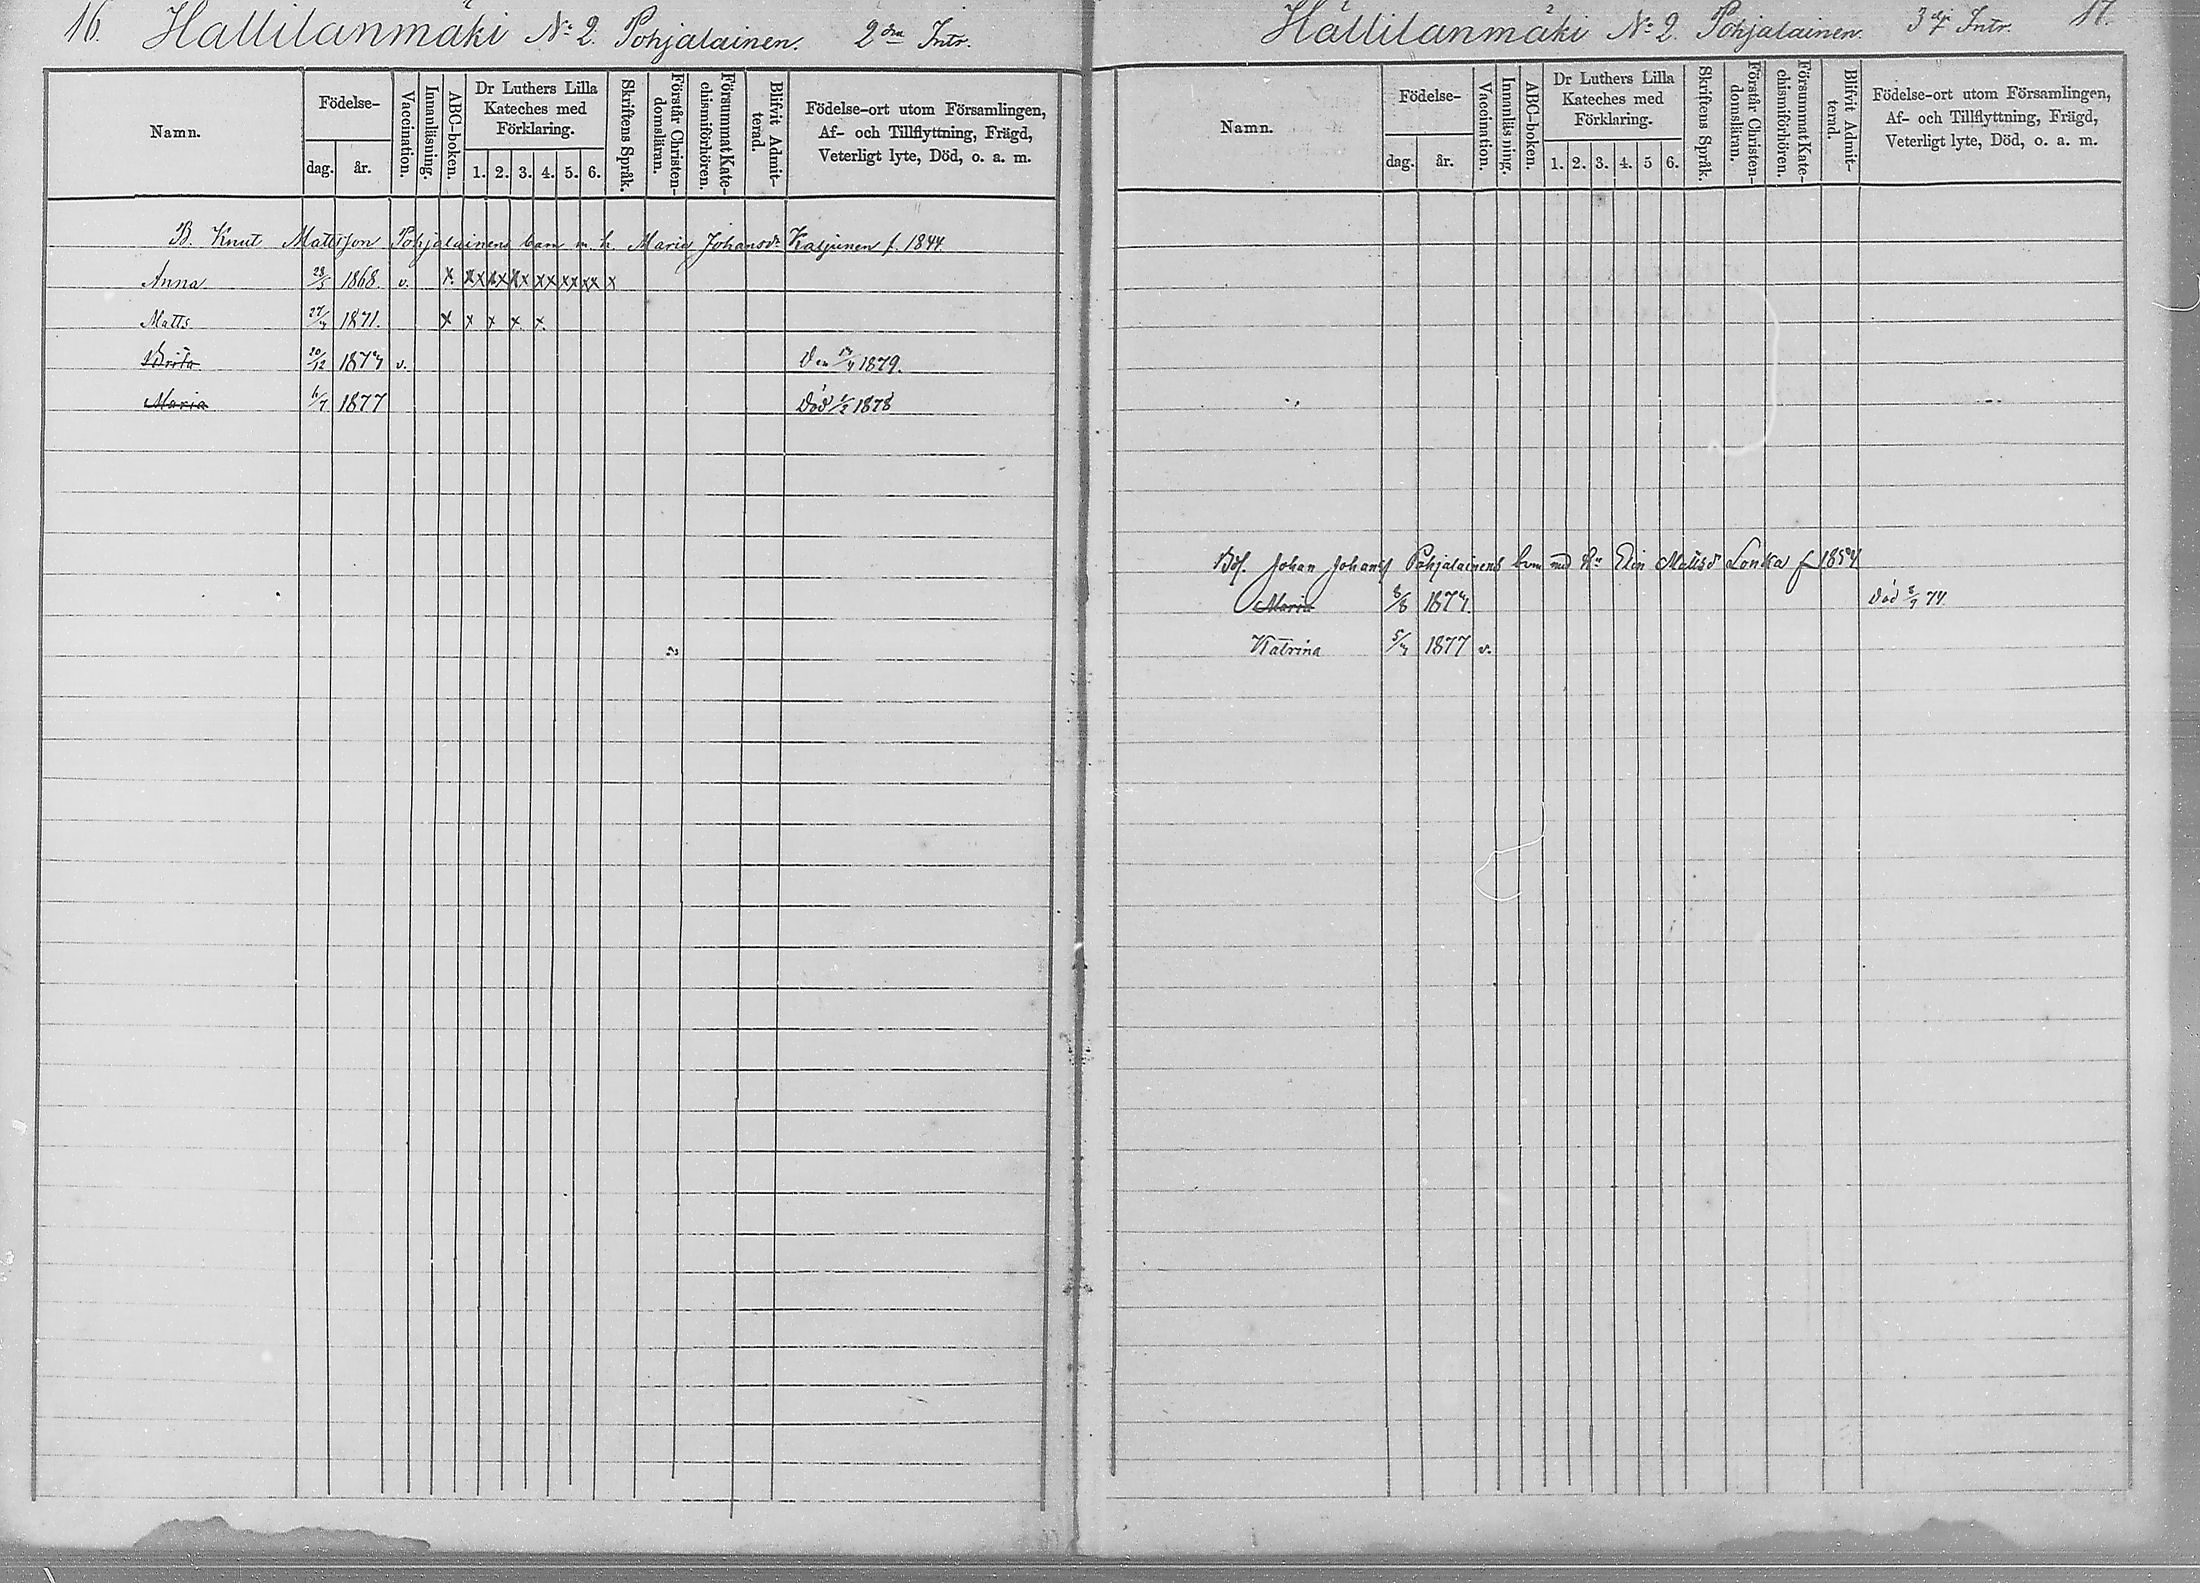 16. Hällilanmäki No 2. Pohjalainen. 2dra Intr.
Namn.
Födelse-
dag.
år.
Vaccination.
Innanläsning.
ABC-boken.
Dr Luthers Lilla
Kateches med
Förklaring.
1. 2. 3. 4. 5. 6.
Skriftens Språk.
Förstår Christen-
domsläran.
Försummat Kate-
chismiförhören.
Blifvit Admit-
terad.
Födelse-ort utom Församlingen,
Af- och Tillflyttning, Frägd,
Veterligt lyte, Död, o. a. m.
B. Knut Mattsson Pohjalainens barn m. h. Maria Johansdr f. 1844.
Anna 28/5 1868. v. x. xx xx xx xx xx xx x
Matts 1871. x x x x x.
Brita 20/12 1874 v. 1879.
Maria 6/7 1877 Död 1878
Hällilanmäki No 2. Pohjalainen. 3dj Intr. 17.
Namn.
Födelse-
dag.
år.
Vaccination.
Innanläsning.
ABC-boken.
Dr Luthers Lilla
Kateches med
Förklaring.
1. 2. 3. 4. 5 6.
Skriftens Språk.
Förstår Christen-
domsläran.
Försummat Kate-
chismiförhören.
Blifvit Admit-
terad.
Födelse-ort utom Församlingen,
Af- och Tillflyttning, Frägd,
Veterligt lyte, Död, o. a. m.
Johan Johans Pohjalainens barn med Elin Mattsd Lonka f 1854
Maria 8/8 1874. Död 74
Katrina 5/4 1877 v.